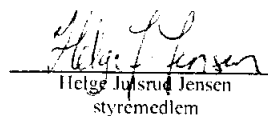 Helge J. Jensen
Helge Julsrud Jensen
styremedlem